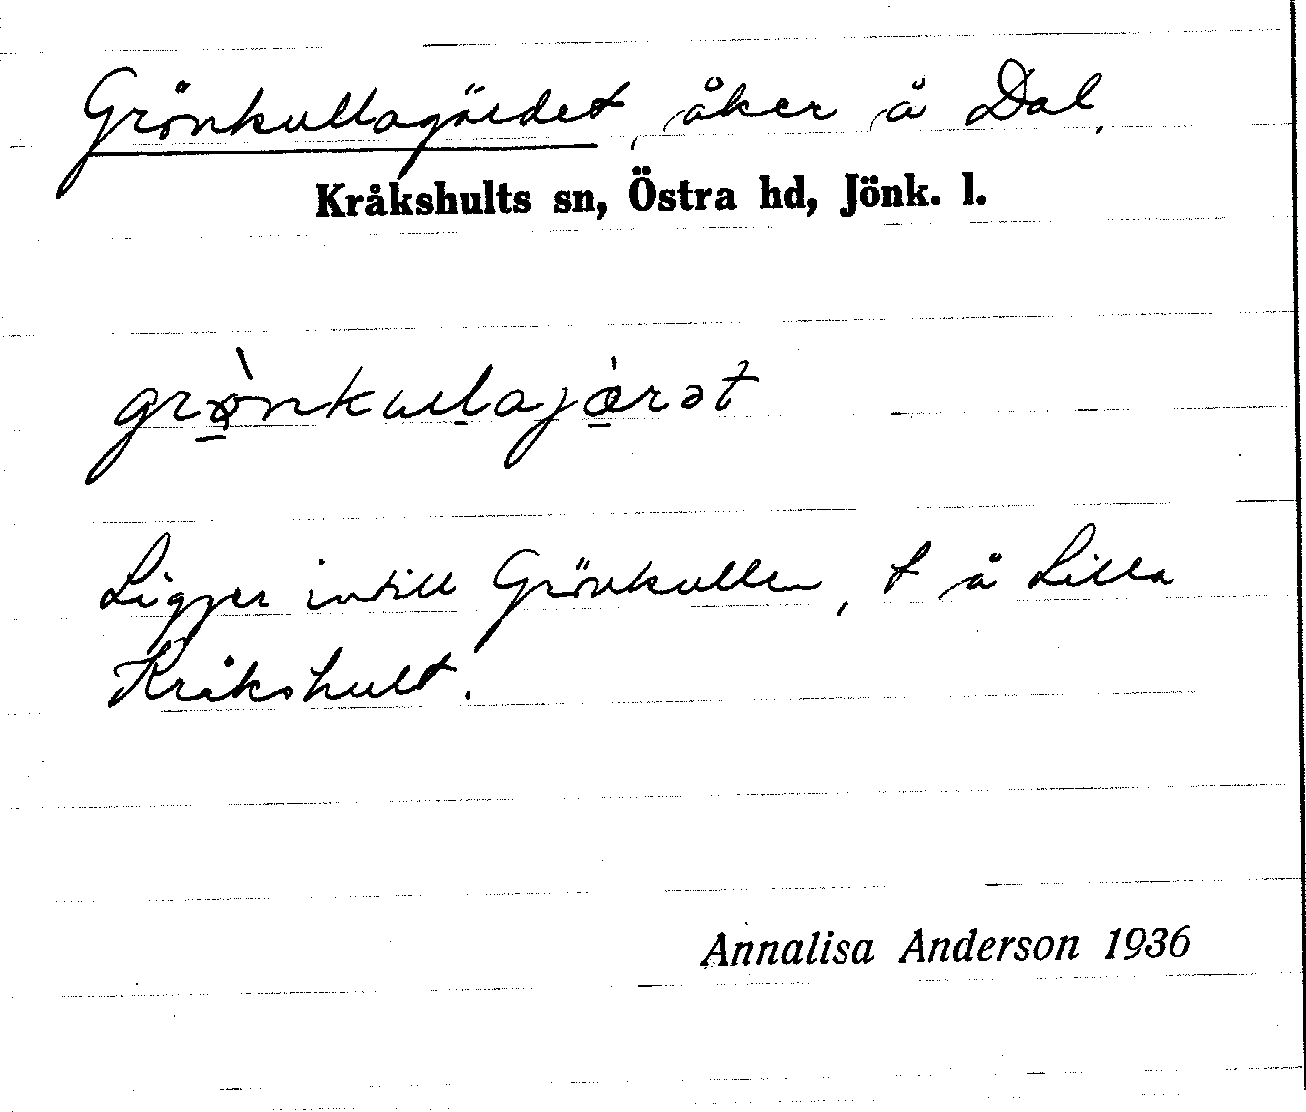 Grönkullagärdet, åker å Dal,
Kråkshults sn, Östra hd, Jönk. l.
grø̀nkulajæ̀rət
Ligger intill Grönkullen, t å Lilla
Kråkshult.
Annalisa Anderson 1936